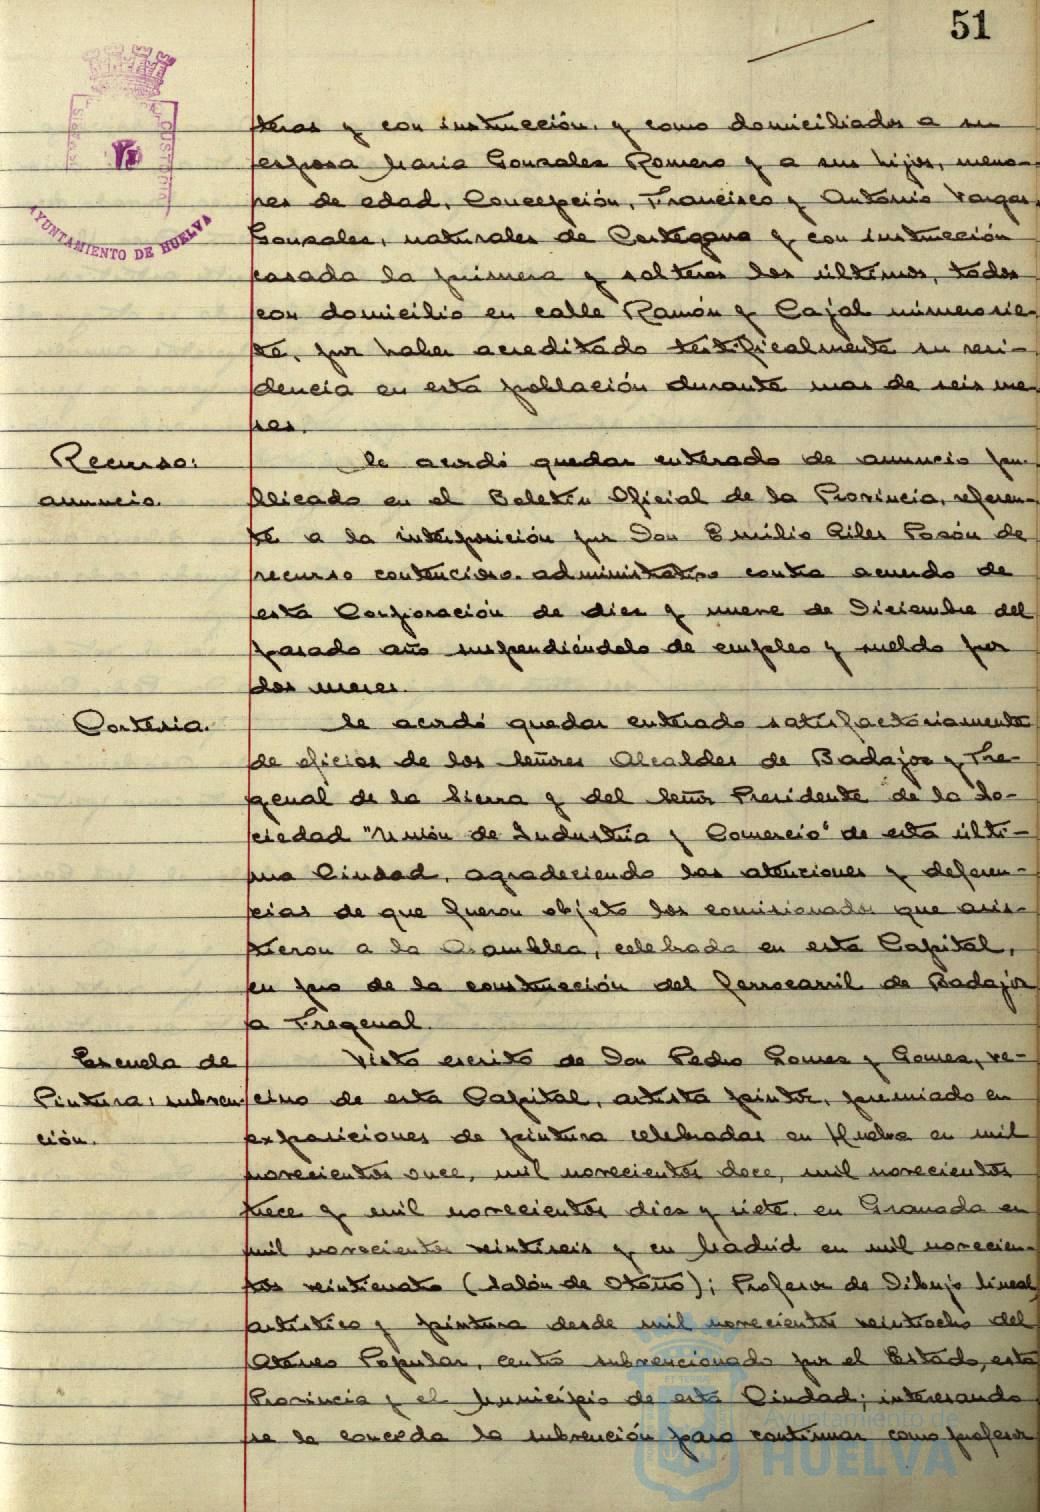 51
AYUNTAMIENTO DE HUELVA
teros y con instrucción, y como domiciliados a su
esposa Maria Gonzales Romero y a sus hijos, meno-
res de edad, Concepción, Francisco y Antonio Vargas
Gonzales, naturales de Cortegana y con instrucción
casada la primera y solteros los últimos, todos
con domicilio en calle Ramón y Cajal número sie-
te, por haber acreditado testificalmente su resi-
dencia en esta población durante mas de seis me-
ses.
Recurso:
anuncio.
Se acordó quedar enterado de anuncio pu-
blicado en el Boletín Oficial de la Provincia, referen-
te a la interposición por Don Emilio Giles Pasón de
recurso contencioso-administrativo contra acuerdo de
esta Corporación de diez y nueve de Diciembre del
pasado año suspendiéndolo de empleo y sueldo por
dos meses.
Cortesia.
Se acordó quedar enterado satisfactoriamente
de oficios de los Señores Alcaldes de Badajoz y Fre-
genal de la Sierra y del Señor Presidente de la So-
ciedad "Unión de Industria y Comercio" de esta últi-
ma Ciudad, agradeciendo las atenciones y deferen-
cias de que fueron objeto los comisionados que asis-
tieron a la Asamblea, celebrada en esta Capital,
en pro de la construcción del ferrocarril de Badajoz
a Fregenal.
Escuela de
Pintura: subven-
ción.
Visto escrito de Don Pedro Gomez y Gomez, ve-
cino de esta Capital, artista pintor, premiado en
exposiciones de pintura celebradas en Huelva en mil
novecientos once, mil novecientos doce, mil novecientos
trece y mil novecientos diez y siete, en Granada en
mil novecientos veintiseis y en Madrid en mil novecien-
tos veinticuatro (Salón de Otoño); Profesor de Dibujo lineal,
artístico y pintura desde mil novecientos veintiocho del
Ateneo Popular, centro subvencionado por el Estado, esta
Provincia y el Municipio de esta Ciudad; interesando
se le conceda la subvención para continuar como profesor
Ayuntamiento de
HUELVA